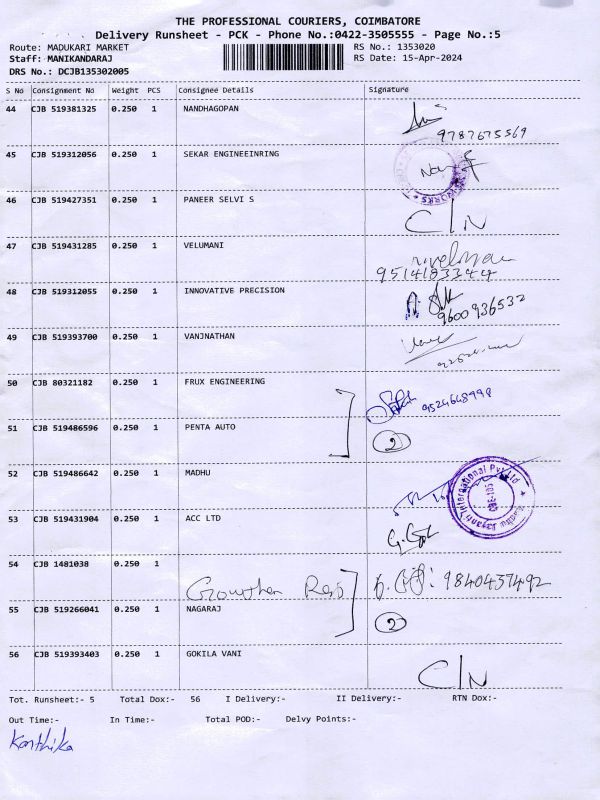 THE PROFESSIONAL COURIERS, COIMBATORE
Delivery Runsheet - PCK - Phone No.:0422-3505555 - Page No.:5
Route: MADUKARI MARKET RS No.: 1353020
Staff: MANIKANDARAJ RS Date: 15-Apr-2024
DRS No.: DCJB135302005
S No Consignment No Weight PCS Consignee Details Signature
44 CJB 519381325 0.250 1 NANDHAGOPAN
9787675569
45 CJB 519312056 0.250 1 SEKAR ENGINEEINRING
46 CJB 519427351 0.250 1 PANEER SELVI S
C/N
47 CJB 519431285 0.250 1 VELUMANI
9514183344
48 CJB 519312055 0.250 1 INNOVATIVE PRECISION
9600936532
49 CJB 519393700 0.250 1 VANJNATHAN
50 CJB 80321182 0.250 1 FRUX ENGINEERING
9524648998
51 CJB 519486596 0.250 1 PENTA AUTO
2
52 CJB 519486642 0.250 1 MADHU
International Pvt Ltd
53 CJB 519431904 0.250 1 ACC LTD
54 CJB 1481038 0.250 1
9840437492
55 CJB 519266041 0.250 1 NAGARAJ
2
56 CJB 519393403 0.250 1 GOKILA VANI
C/N
Tot. Runsheet:- 5 Total Dox:- 56 I Delivery:- II Delivery:- RTN Dox:-
Out Time:- In Time:- Total POD:- Delvy Points:-
Karthika